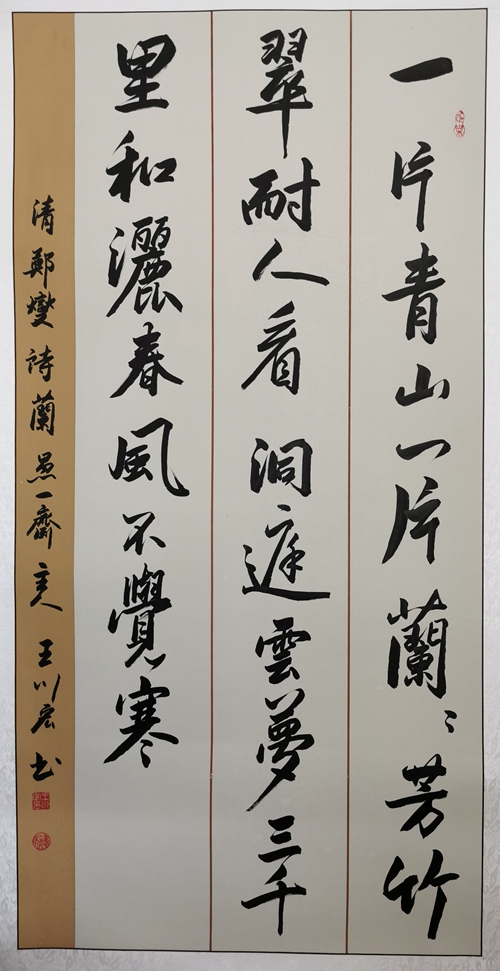 一片青山一片蘭〻芳竹
翠耐人看洞庭雲夢三千
里和灑春風不覺寒
清鄭燮詩蘭一齋主人王川宏书